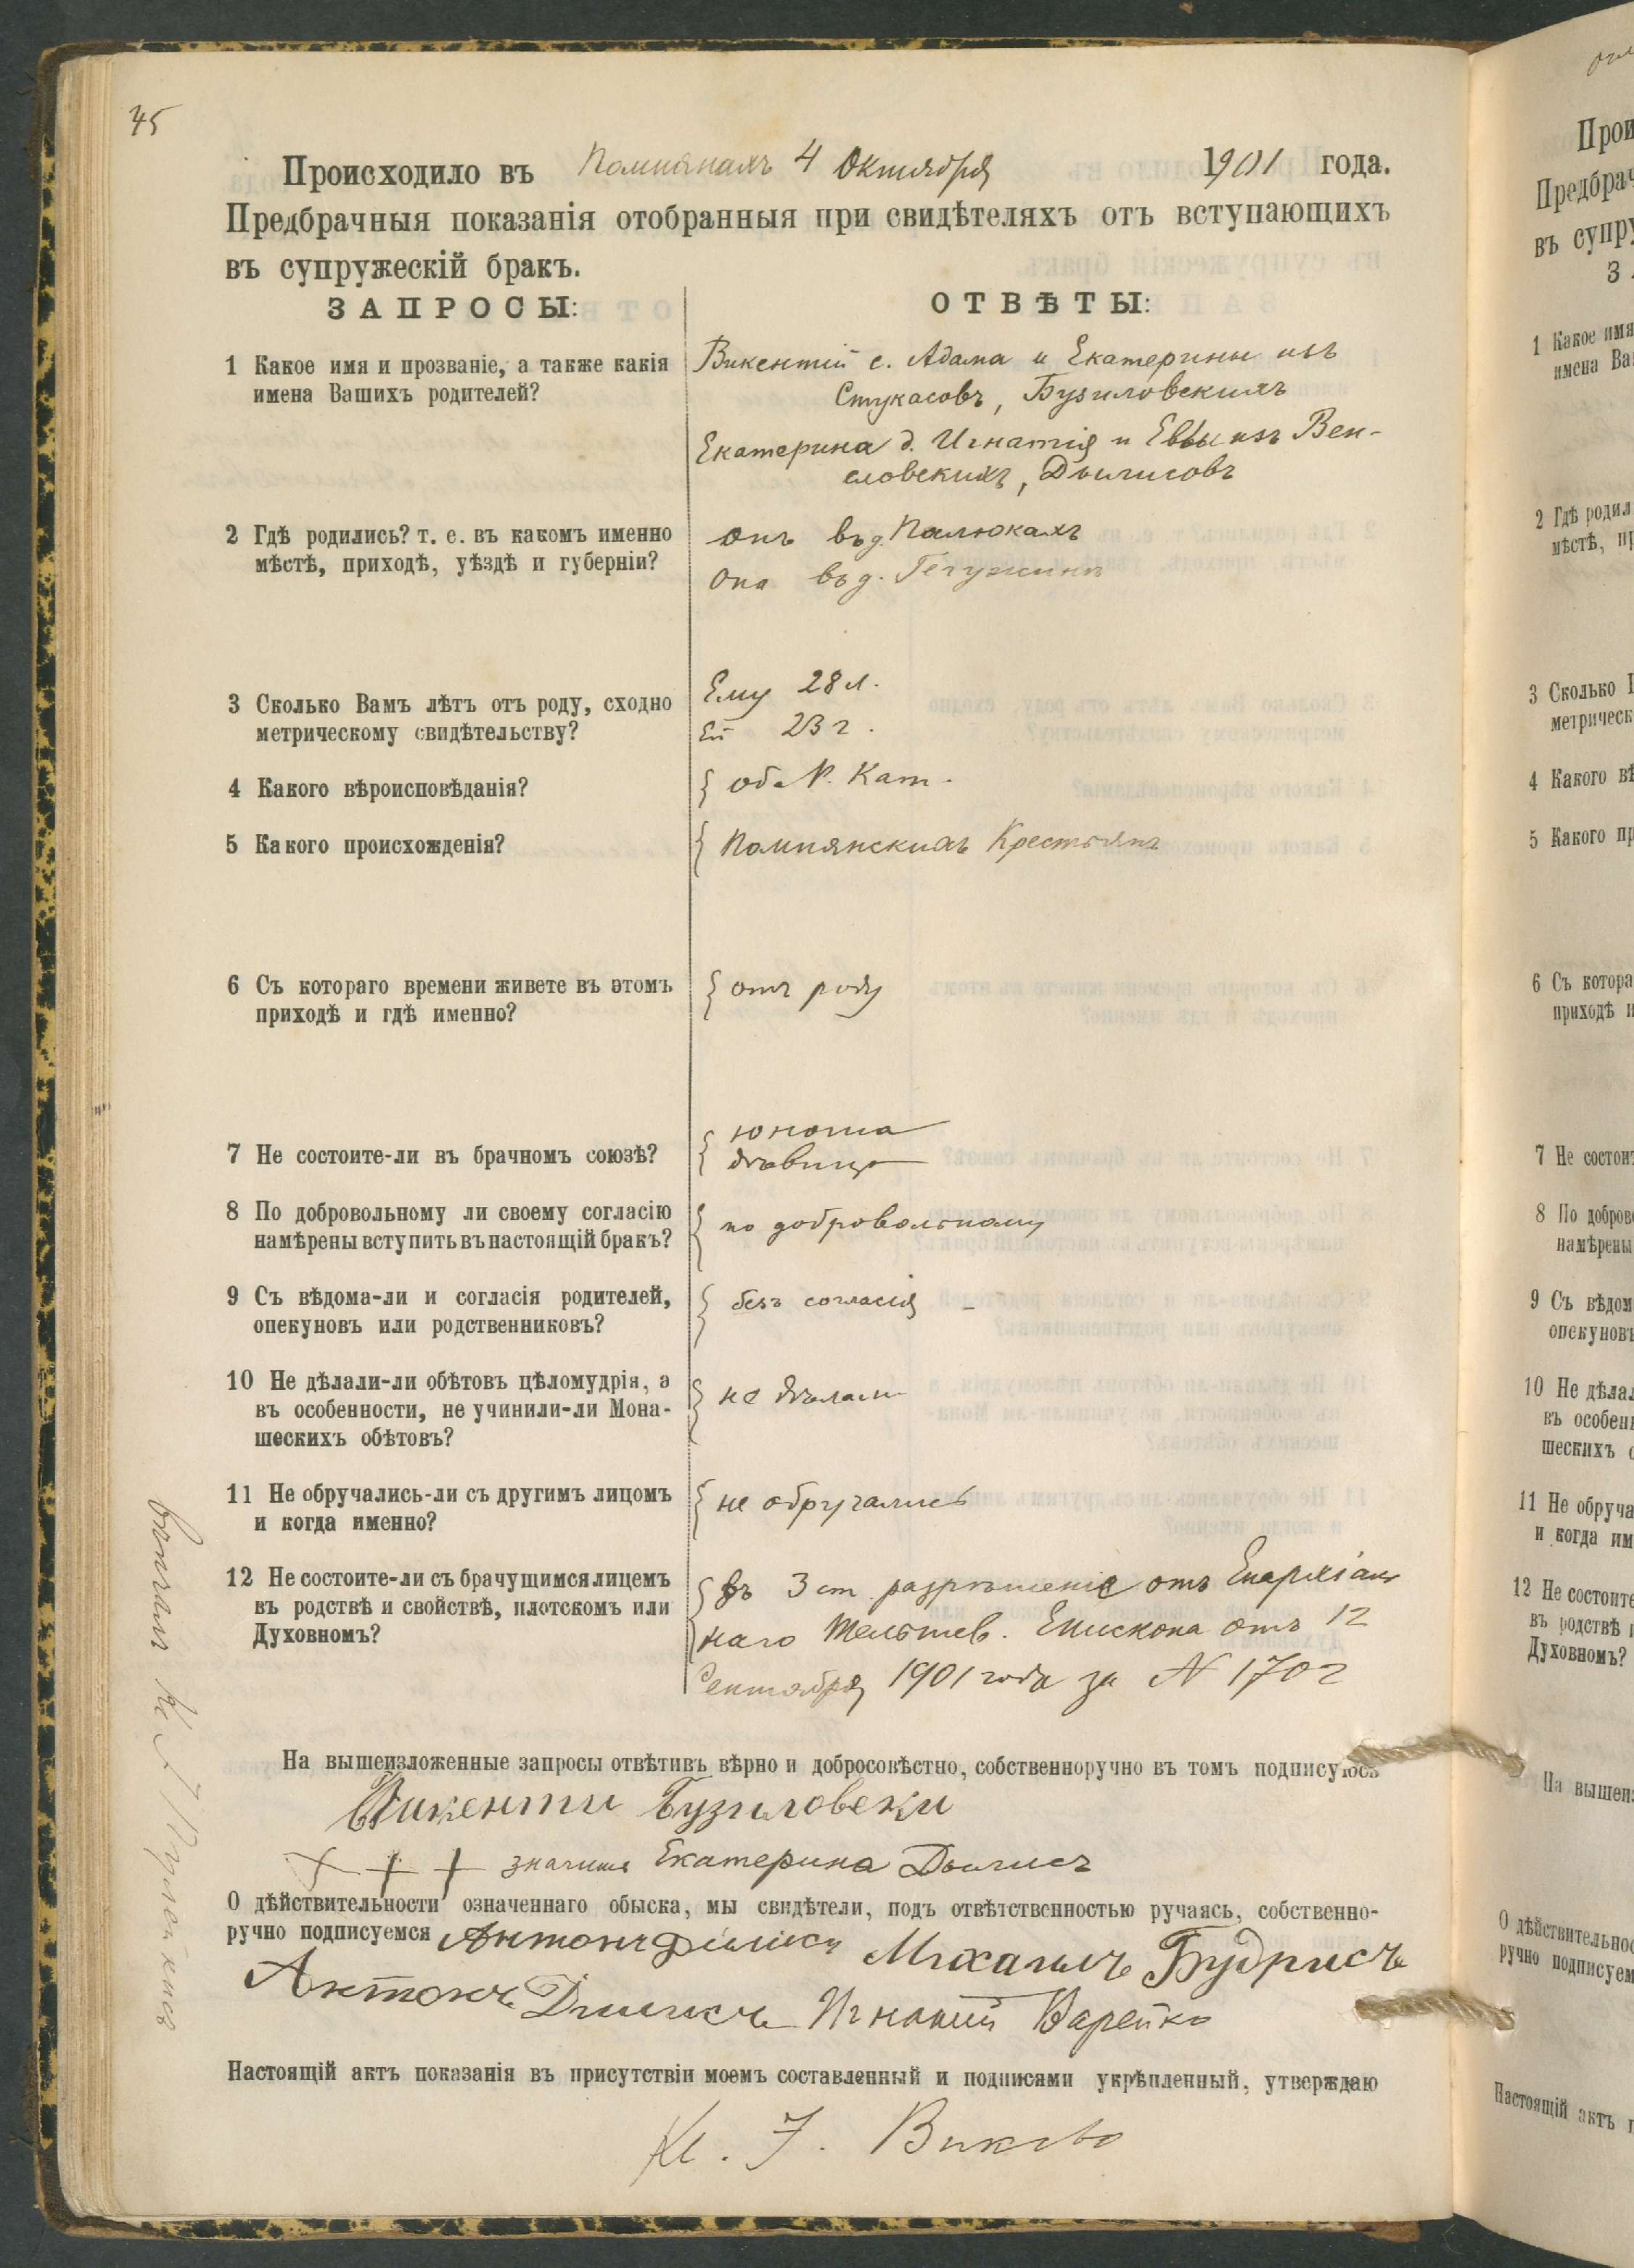 45
Происходило въ Помпянахъ 4 Октября 1901 года.
Предбрачныя показанія отобранныя при свидѣтеляхъ отъ вступающихъ
въ супружескій бракъ.
ЗАПРОСЫ: ОТВѢТЫ:
1 Какое имя и прозваніе, а также какія
имена Вашихъ родителей?
Викентій с. Адама и Екатерины изъ
Стукасовъ, Бузиловскихъ
Екатерина д. Игнатія и Евы изъ Вен-
словскихъ, Дылисовъ
2 Гдѣ родились? т. е. въ какомъ именно
мѣстѣ, приходѣ, уѣздѣ и губерніи?
Онъ въ д. Палюкахъ
Она въ д.
3 Сколько Вамъ лѣтъ отъ роду, сходно
метрическому свидѣтельству?
Ему 28 л.
Ей 23 г.
4 Какого вѣроисповѣданія?
оба Р. Кат.
5 Какого происхожденія?
Помпянскихъ Крестьянъ
6 Съ котораго времени живете въ этомъ
приходѣ и гдѣ именно?
отъ роду
7 Не состоите-ли въ брачномъ союзѣ?
юноша
дѣвица
8 По добровольному ли своему согласію
намѣрены вступить въ настоящій бракъ?
по добровольному
9 Съ вѣдома-ли и согласія родителей,
опекуновъ или родственниковъ?
безъ согласія –
10 Не дѣлали-ли обѣтовъ цѣломудрія, а
въ особенности, не учинили-ли Мона-
шескихъ обѣтовъ?
не дѣлали
11 Не обручались-ли съ другимъ лицомъ
и когда именно?
не обручались
12 Не состоите-ли съ брачущимся лицемъ
въ родствѣ и свойствѣ, плотскомъ или
Духовномъ?
въ 3 ст. разрѣшеніе отъ Епархіаль
наго Тельшев. Епископа отъ 12
Сентября 1901 года за N 1702
На вышеизложенные запросы отвѣтивъ вѣрно и добросовѣстно, собственноручно въ томъ подписуюсь
Викенти Бузиловски
+ + + Екатерина Дылисъ
О дѣйствительности означеннаго обыска, мы свидѣтели, подъ отвѣтственностью ручаясь, собственно-
ручно подписуемся Антонъ Дилисъ Михаилъ Будрисъ
Антонъ Дилисъ Варейко
Настоящій актъ показанія въ присутствіи моемъ составленный и подписями укрѣпленный, утверждаю
Кс.
вѣнчалъ Кс.